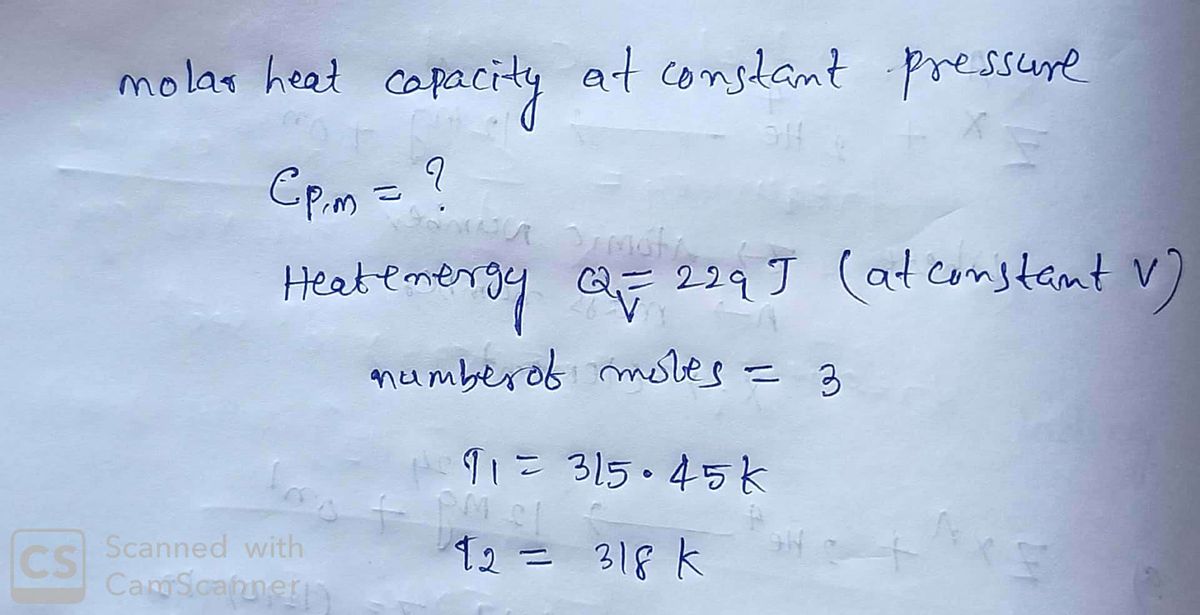 molar heat capacity at constant pressure
Cp,m = ?
Heat energy Qv = 229 J (at constant V)
number of moles = 3
T1 = 315.45 k
T2 = 318 k
CS Scanned with
CamScanner